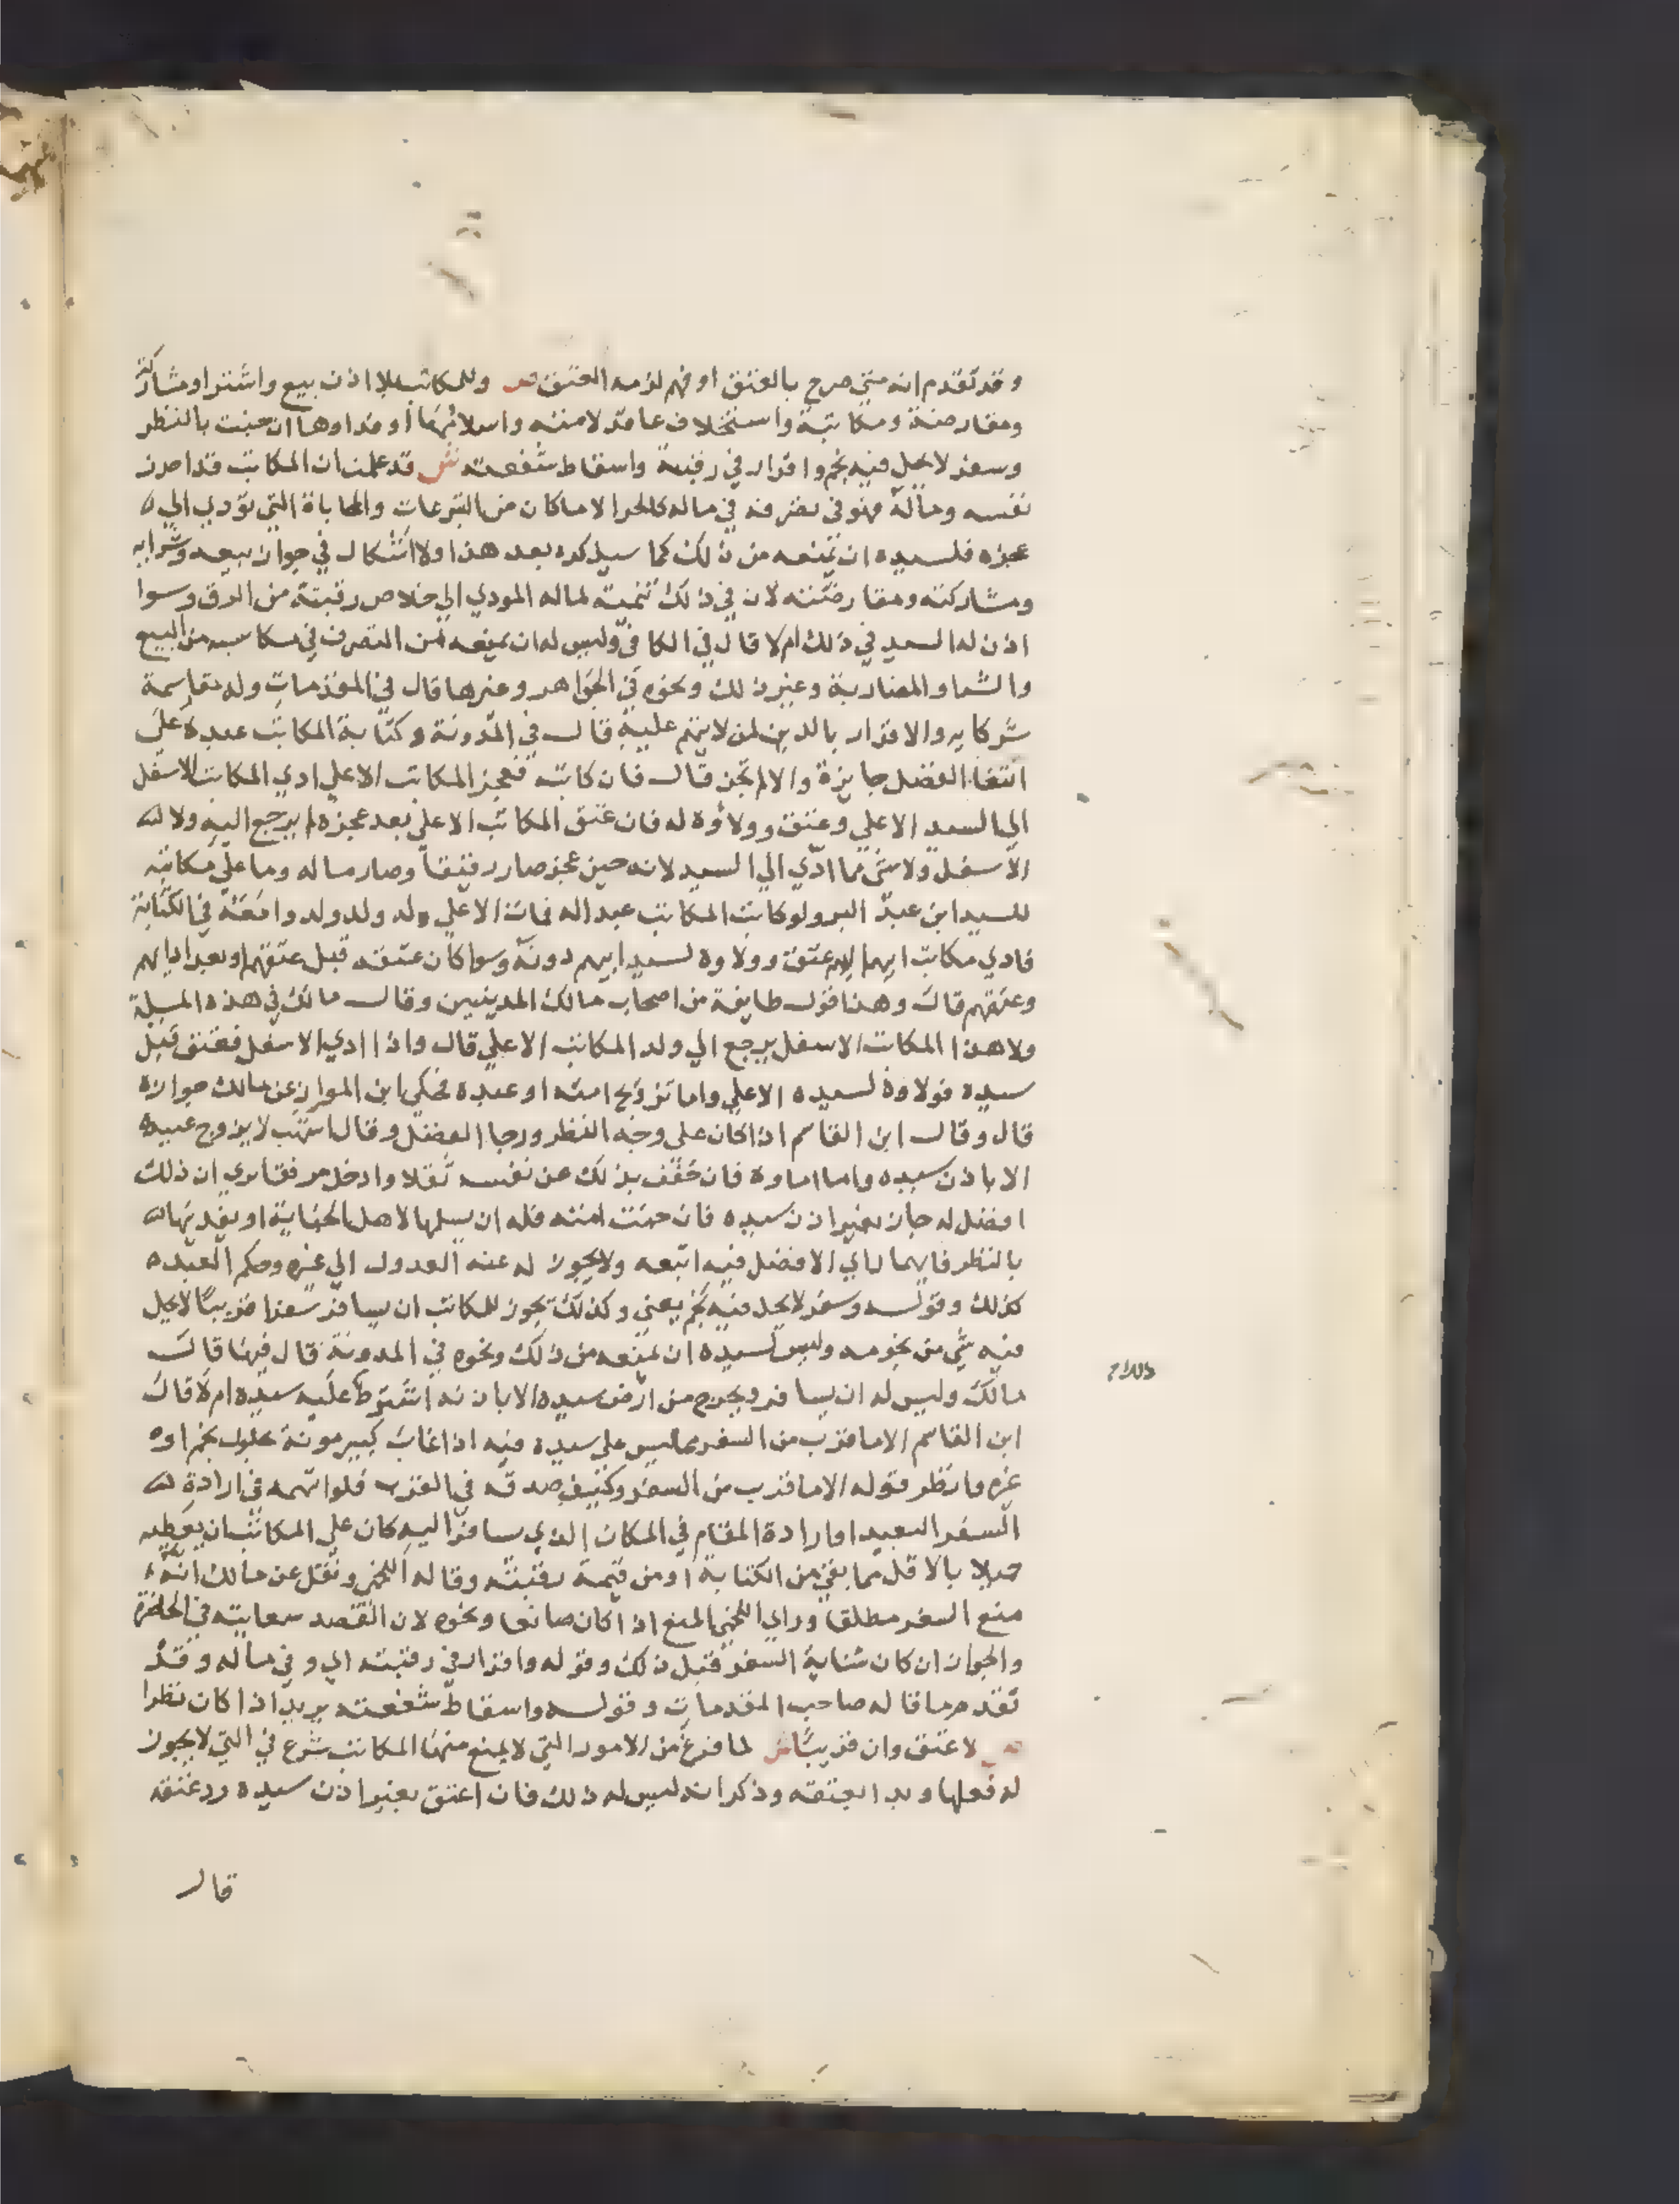 وقد تقدم انه متي صرح بالعتق او فهم لزمه العتق ص وللمكاتب بلا اذن بيع واشترا ومشاركة
ومقارضة ومكاتبة واستخلاف عاقد لامته واسلامها او فداوها ان جنت بالنظر
وسفر لا يحل فيه نجم واقرار في رقبة واسقاط شفعته ش قد علمت ان المكاتب قد احرز
نفسه وماله فهو في تصرفه في ماله كالحر الا ما كان من التبرعات والمحاباة التي تؤدي الي
عجزه فلسيده ان يمنعه من ذلك كما سيذكره بعد هذا ولا اشكال في جواز بيعه وشرايه
ومشاركته ومقارضته لان في ذلك تنمية لماله المودي الي خلاص رقبته من الرق وسوا
اذن له السيد في ذلك ام لا قال في الكافي وليس له ان يمنعه من التصرف في مكاسبه من البيع
والشرا والمضاربة وغير ذلك ونحوه في الجواهر وغيرها قال في المقدمات وله مقاسمة
شركايه والاقرار بالدين لمن لا يتهم عليه قال في المدونة وكتابة المكاتب عبده علي
ابتغا الفضل جايزة والا لم تجز قال فان كاتب فعجز المكاتب الاعلي ادي المكاتب الاسفل
الي السيد الاعلي وعتق وولاؤه له فان عتق المكاتب الاعلي بعد عجزه لم يرجع اليه ولا
الاسفل ولا شي مما ادي الي السيد لانه حين عجز صار رقيقا وصار ماله وما علي مكاتبه
للسيد ابن عبد البر ولو كاتب المكاتب عبدا له فمات الاعلي وله ولد ولد وا معه في الكتابة
فادي مكاتب ابيهم اليهم عتق وولاوه لسيد ابيهم دونه وسوا كان عتقه قبل عتقهم او بعد ادايهم
وعتقهم قال وهذا قول طايفة من اصحاب مالك المدينيين وقال مالك في هذه المسيلة
ولا هذا المكاتب الاسفل يرجع الي ولد المكاتب الاعلي قال واذا ادي الاسفل فعتق قبل
سيده فولاوه لسيده الاعلي واما تزويج امته او عبده فحكي ابن المواز عن مالك جوازه
قال وقال ابن القاسم اذا كان علي وجه النظر ورجا الفضل وقال اشهب لا يزوج عبيده
الا باذن سيده واما اماوه فان خفف بذلك عن نفسه ثقلا وادخل مرفقا نري ان ذلك
افضل له جاز بغير اذن سيده فان جنت امته فله ان يسلمها لاهل الجناية او يفديها
بالنظر فايهما راي الافضل فيه اتبعه ولا يجوز له عنه العدول الي غيره وحكم العبده
كذلك وقوله وسفر لا يحل فيه نجم يعني وكذلك يجوز للمكاتب ان يسافر سفرا قريبا لا يحل
فيه شي من نجومه وليس لسيده ان يمنعه من ذلك ونحوه في المدونة قال فيها قال
مالك وليس له ان يسافر ويخرج من ارض سيده الا باذنه اشترط عليه سيده ام لا قال
ابن القاسم الا ما قرب من السفر مما ليس علي سيده فيه اذا غاب كبير مونة بحلول نجم او
غيره وانظر قوله الا ما قرب من السفر وكيف صدقه في القرب فلو اتهمه في ارادة
السفر البعيد او ارادة المقام في المكان الذي سافر اليه كان علي المكاتب ان يعطيه
حميلا بالاقل مما بقي من الكتابة او من قيمة رقبته وقاله اللخمي ونقل عن مالك انه
منع السفر مطلقا وراي اللخمي المنع اذا كان صانعا ونحوه لان القصد سعايته في الحاضرة
والجواز ان كان شانه السفر قبل ذلك وقوله واقرار في رقبته اي وفي ماله وقد
تقدم ما قاله صاحب المقدمات وقوله واسقاط شفعته يريد اذا كان نظرا
ص لا عتق وان قريبا ش لما فرغ من الامور التي لا يمنع منها المكاتب شرع في التي لا يجوز
له فعلها وبدا بعتقه وذكر انه ليس له ذلك فان اعتق بغير اذن سيده رد عتقه
قال